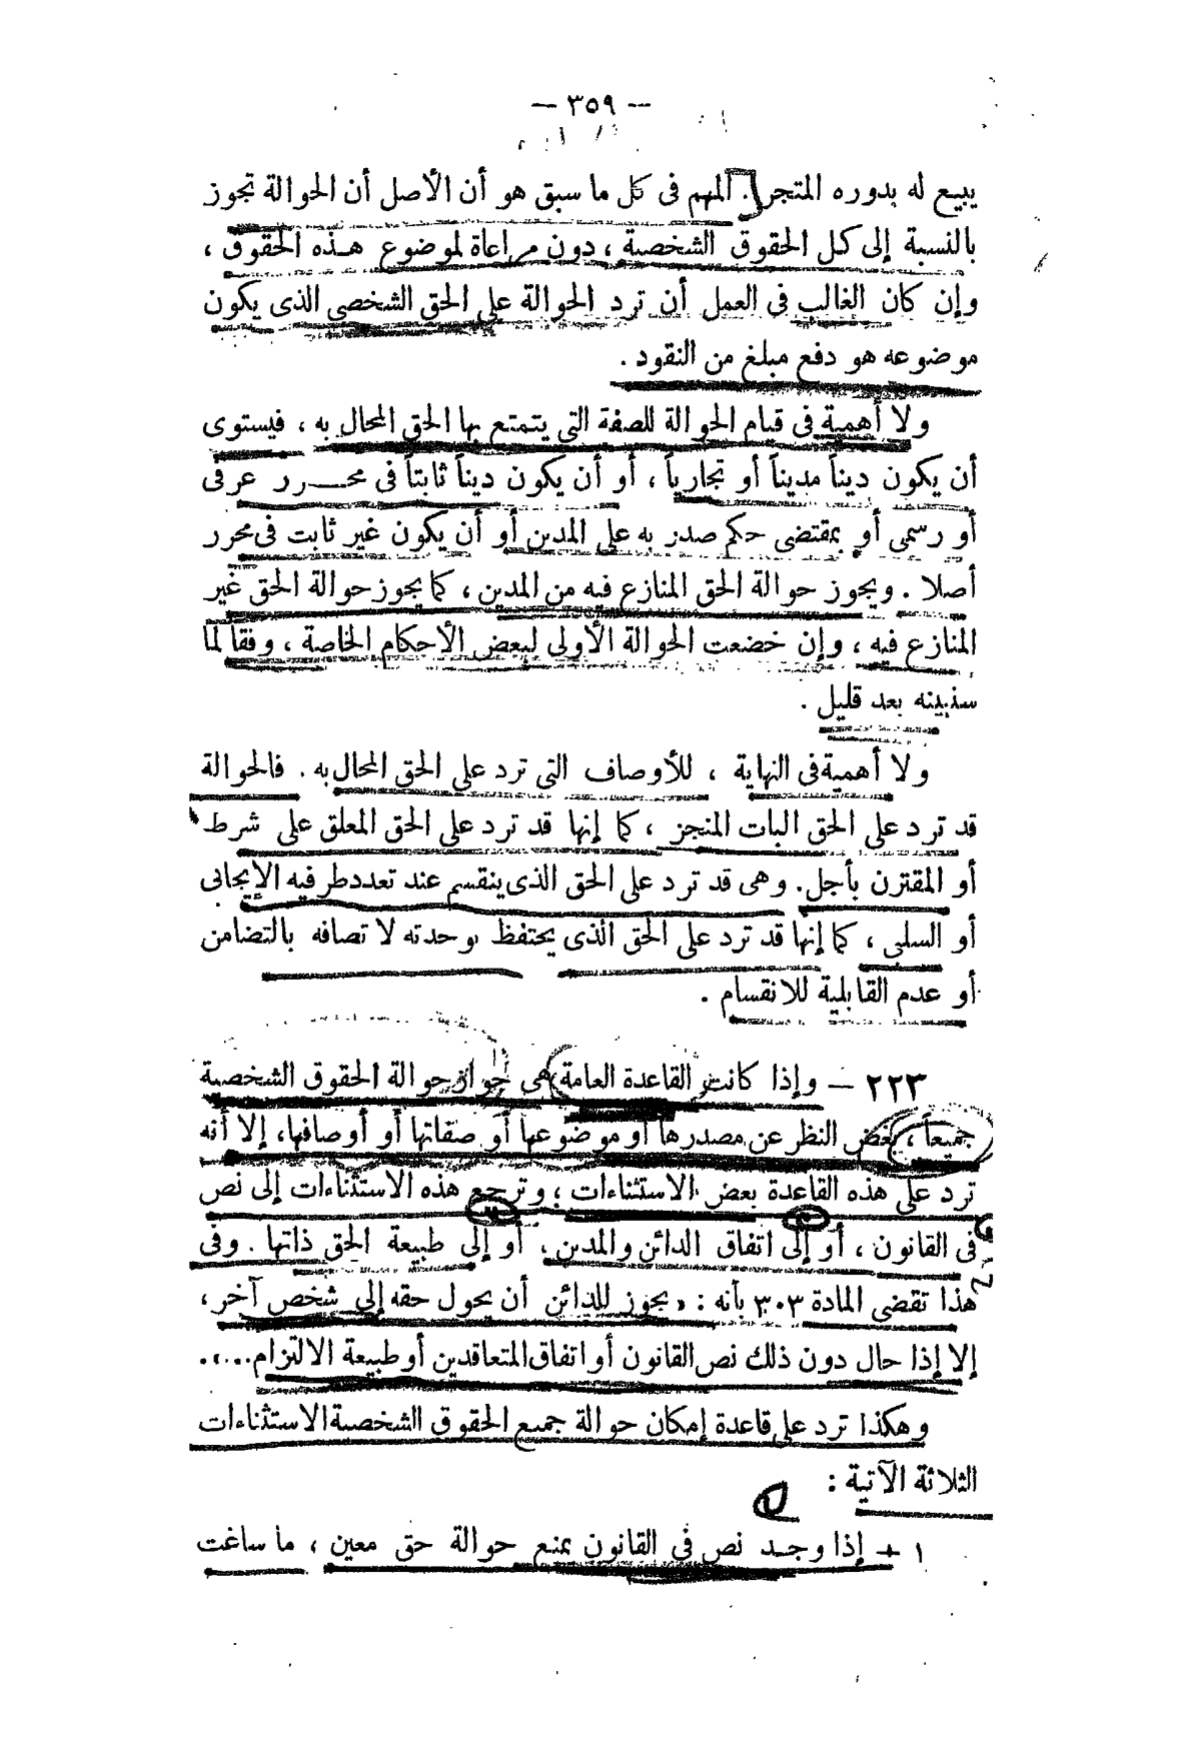 — ٣٥٩ —
يبيع له بدوره المتجر). المهم فى كل ما سبق هو أن الأصل أن الحوالة تجوز
بالنسبة إلى كل الحقوق الشخصية ، دون مراعاة لموضوع هذه الحقوق ،
وإن كان الغالب فى العمل أن ترد الحوالة على الحق الشخصى الذى يكون
موضوعه هو دفع مبلغ من النقود .
ولا أهمية فى قيام الحوالة للصفة التى يتمتع بها الحق المحال به ، فيستوى
أن يكون ديناً مدنياً أو تجارياً ، أو أن يكون ديناً ثابتاً فى محرر عرفى
أو رسمى أو بمقتضى حكم صدر به على المدين أو أن يكون غير ثابت فى محرر
أصلا . ويجوز حوالة الحق المنازع فيه من المدين ، كما يجوز حوالة الحق غير
المنازع فيه ، وإن خضعت الحوالة الأولى لبعض الأحكام الخاصة ، وفقاً لما
سنبينه بعد قليل .
ولا أهمية فى النهاية ، للأوصاف التى ترد على الحق المحال به . فالحوالة
قد ترد على الحق البات المنجز ، كما إنها قد ترد على الحق المعلق على شرط
أو المقترن بأجل . وهى قد ترد على الحق الذى ينقسم عند تعدد طرفيه الإيجابى
أو السلبى ، كما إنها قد ترد على الحق الذى يحتفظ بوحدته لاتصافه بالتضامن
أو عدم القابلية للانقسام .
٢٢٣ — وإذا كانت القاعدة العامة هى جواز حوالة الحقوق الشخصية
جميعاً ، بغض النظر عن مصدرها أو موضوعها أو صفاتها أو أوصافها، إلا أنه
ترد على هذه القاعدة بعض الاستثناءات ؛ وترجع هذه الاستثناءات إلى نص
فى القانون ، أو إلى اتفاق الدائن والمدين ، أو إلى طبيعة الحق ذاتها . وفى
هذا تقضى المادة ٣٠٣ بأنه : «يجوز للدائن أن يحول حقه إلى شخص آخر ،
إلا إذا حال دون ذلك نص القانون أو اتفاق المتعاقدين أو طبيعة الالتزام....».
وهكذا ترد على قاعدة إمكان حوالة جميع الحقوق الشخصية الاستثناءات
الثلاثة الآتية :
١ — إذا وجد نص فى القانون يمنع حوالة حق معين ، ما ساغت